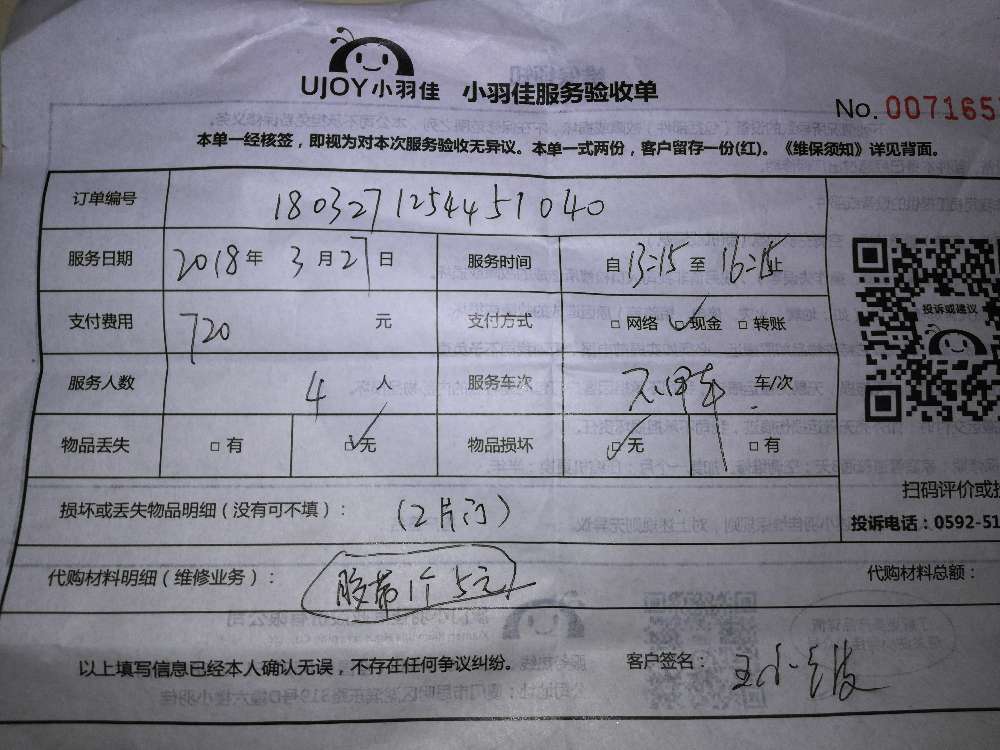 UJOY小羽佳 小羽佳服务验收单
No. 007165
本单一经核签，即视为对本次服务验收无异议。本单一式两份，客户留存一份(红)。《维保须知》详见背面。
订单编号 1803271254451040
服务日期 2018年 3月27日 服务时间 自13:15至16:15止
支付费用 720 元 支付方式 □网络 □✓现金 □转账
服务人数 4 人 服务车次 车/次
物品丢失 □有 □✓无 物品损坏 □✓无 □有
投诉或建议
扫码评价或投
损坏或丢失物品明细（没有可不填）： (2片门)
投诉电话：0592-51
代购材料明细（维修业务）： 胶带1个 5元
代购材料总额：
以上填写信息已经本人确认无误，不存在任何争议纠纷。 客户签名： 王小